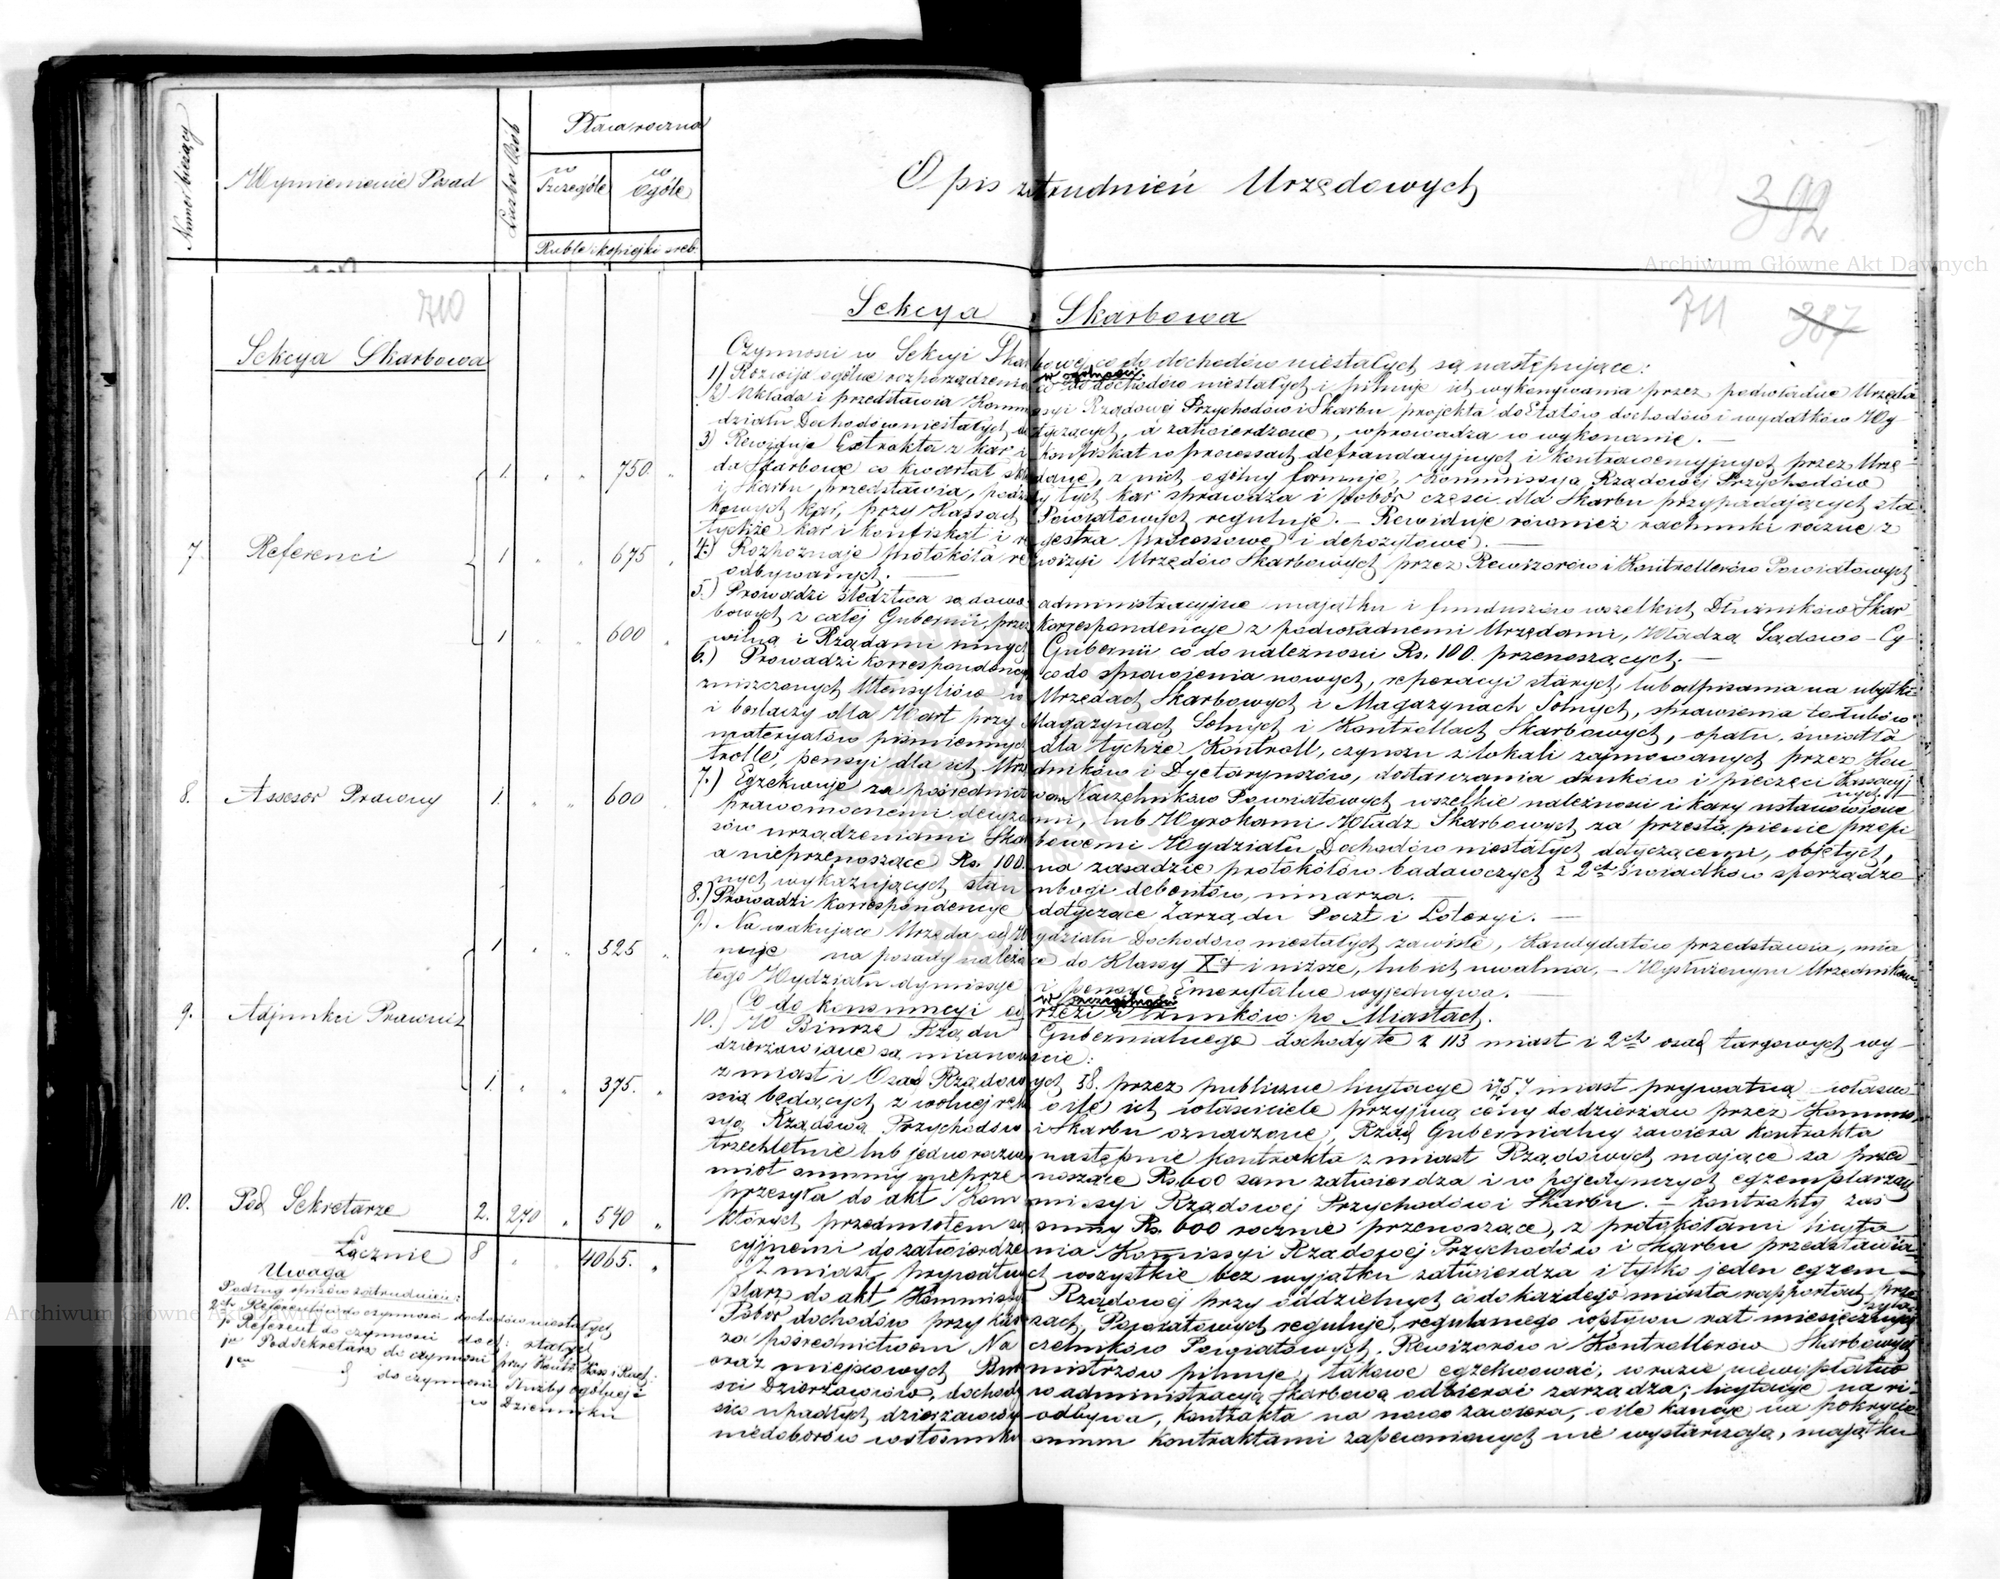 Numer bieżący
Wymienienie Posad
Liczba Osób
Płaca roczna
w Szczególe
w Ogóle
Ruble i kopiejki sreb.
Opis zatrudnień Urzędowych
392
Archiwum Główne Akt Dawnych
710
711
387
Sekcya Skarbowa
1. " " 750. "
7. Referenci 1 " " 675 "
1 " " 600 "
8. Assesor Prawny 1. " " 600 "
1 " " 525 "
9. Adjunkci Prawni
1. " " 375. "
10. Pod Sekretarze 2. 270 " 540 "
Łącznie 8 " " 4065. "
Uwaga
Podług opisów zatrudnień:
2ch Referentów do czynności dochodów niestałych
1n Referent do czynności doch: stałych
1en Podsekretarz do czynności przy Kontr: Kass i Rach:
1en d do czynności Służby ogólnej i
w Dzienniku
Sekcya Skarbowa
Czynności w Sekcyi Skarbowej, co do dochodów niestałych są następujące:
w ogólności.
1) Rozwija ogólne rozporządzenia co do dochodów niestałych i pilnuje ich wykonywania przez podwładne Urzęda
2) Układa i przedstawia Kommissyi Rządowej Przychodów i Skarbu projekta do Etatów dochodów i wydatków Wy-
działu Dochodów niestałych dotyczących, a zatwierdzone, wprowadza w wykonanie. —
3) Rewiduje Extrakta z kar i konfiskat w processach defraudacyjnych i kontrawencyjnych przez Urzę-
da Skarbowe co kwartał składane, z nich ogólny formuje, Kommissyi Rządowej Przychodów
i Skarbu przedstawia, podział tych kar sprawdza i pobór części dla Skarbu przypadających sta-
kowych kar, przy Kassach Powiatowych reguluje. — Rewiduje również rachunki roczne z
tychże kar i konfiskat i rejestra processowe i depozytowe. —
4.) Rozpoznaje protokóła rewizyi Urzędów Skarbowych przez Rewizorów i Kontrollerów Powiatowych
odbywanych. —
5.) Prowadzi śledztwa sądowo administracyjne majątku i funduszów wszelkich Dłużników Skar-
bowych z całej Gubernii, przez korrespondencyje z podwładnemi Urzędami, Władzą Sądowo-Cy-
wilną i Rządami innych Gubernii co do należności Rs. 100. przenoszących. —
6.) Prowadzi korrespondencyę co do sprawienia nowych, reperacyi starych, lub odpisania na ubytki
zniszczonych Utensyliów w Urzędach Skarbowych i Magazynach Solnych, sprawienia tołubów
i buraczy dla Wart przy Magazynach Solnych i Kontrollach Skarbowych, opału, światła
materyałów piśmiennych dla tychże Kontroll, czynszu z lokali zajmowanych przez Kon-
trolle, pensyi dla ich Urzędników i Dyetaryuszów, dostarczania druków i pieczęci Kassowych
7.) Egzekwuje za pośrednictwem Naczelników Powiatowych wszelkie należności i kary ustanowione
prawomocnemi decyzyami, lub Wyrokami Władz Skarbowych za przestąpienie przepi-
sów urządzeniami Skarbowemi Wydziału Dochodów niestałych dotyczącemi, objętych,
a nieprzenoszące Rs. 100. na zasadzie protokółów badawczych z 2ch świadków sporządzo-
nych wykazujących stan ubogi debentów, umarza.
8.) Prowadzi korrespondencyę dotyczące Zarządu Poczt i Loteryi. —
9.) Na wakujące Urzęda od Wydziału Dochodów niestałych zawisłe, Kandydatów przedstawia, mia-
nuje na posady należące do Klassy X i niższe, lub ich uwalnia. — Wysłużonym Urzędnikom
tego Wydziału dymissye i pensye Emerytalne wyjednywa. —
w szczególności
Co do konsumcyi od rzezi i trunków po Miastach.
10.) W Biurze Rządu Gubernialnego dochody te z 113 miast i 2ch osad targowych wy-
dzierżawiane są mianowicie:
z miast i Osad Rządowych 38. przez publiczne licytacye i z 57 miast prywatną własno-
ścią będących z wolnej ręki o ile ich właściciele przyjmą ceny do dzierżaw przez Kommis-
syą Rządową Przychodów i Skarbu oznaczone, Rząd Gubernialny zawiera kontrakta
trzechletnie lub jednoroczne następnie kontrakta z miast Rządowych mające za przed-
miot summy nieprzenoszące Rs. 600 sam zatwierdza i w pojedynczych egzemplarzach
przesyła do akt Kommissyi Rządowej Przychodów i Skarbu. — Kontrakty zaś
których przedmiotem są summy Rs. 600 rocznie przenoszące, z protokółami licyta-
cyjnemi do zatwierdzenia Komissyi Rządowej Przychodów i Skarbu przedstawia.
Z miast prywatnych wszystkie bez wyjątku zatwierdza i tylko jeden egzem-
plarz do akt Kommissyi Rządowej przy oddzielnych co do każdego miasta rapportach prze-
syła.
Pobór dochodów przy Kassach Powiatowych reguluje, regularnego wpływu rat miesięcznych
za pośrednictwem Naczelników Powiatowych, Rewizorów i Kontrollerów Skarbowych
oraz miejscowych Burmistrzów pilnuje, takowe egzekwować, w razie niewypłatno-
ści Dzierżawców, dochody w administracyą Skarbową odbierać zarządza; licytacye na ri-
sico upadłych dzierżawców odbywa, kontrakta na nowo zawiera, o ile kaucye na pokrycie
niedoborów w stosunku summ kontraktami zapewnionych nie wystarczają, majątku
Archiwum Główne Akt Dawnych